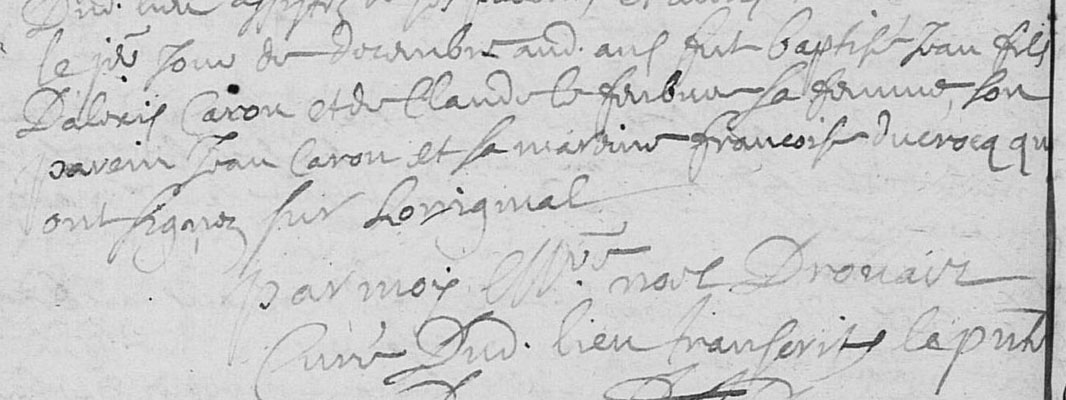 Dud. lieu
le jer Jour de decembre aud. an fut baptisé Jean fils
Dalexis Caron et de Claude le febure sa femme, son
parein Jean Caron et sa mareine francoise ducrocq qu
ont signez sur Loriginal
par moy noel Drouart
Curé Dud. lieu transcrit le pnt